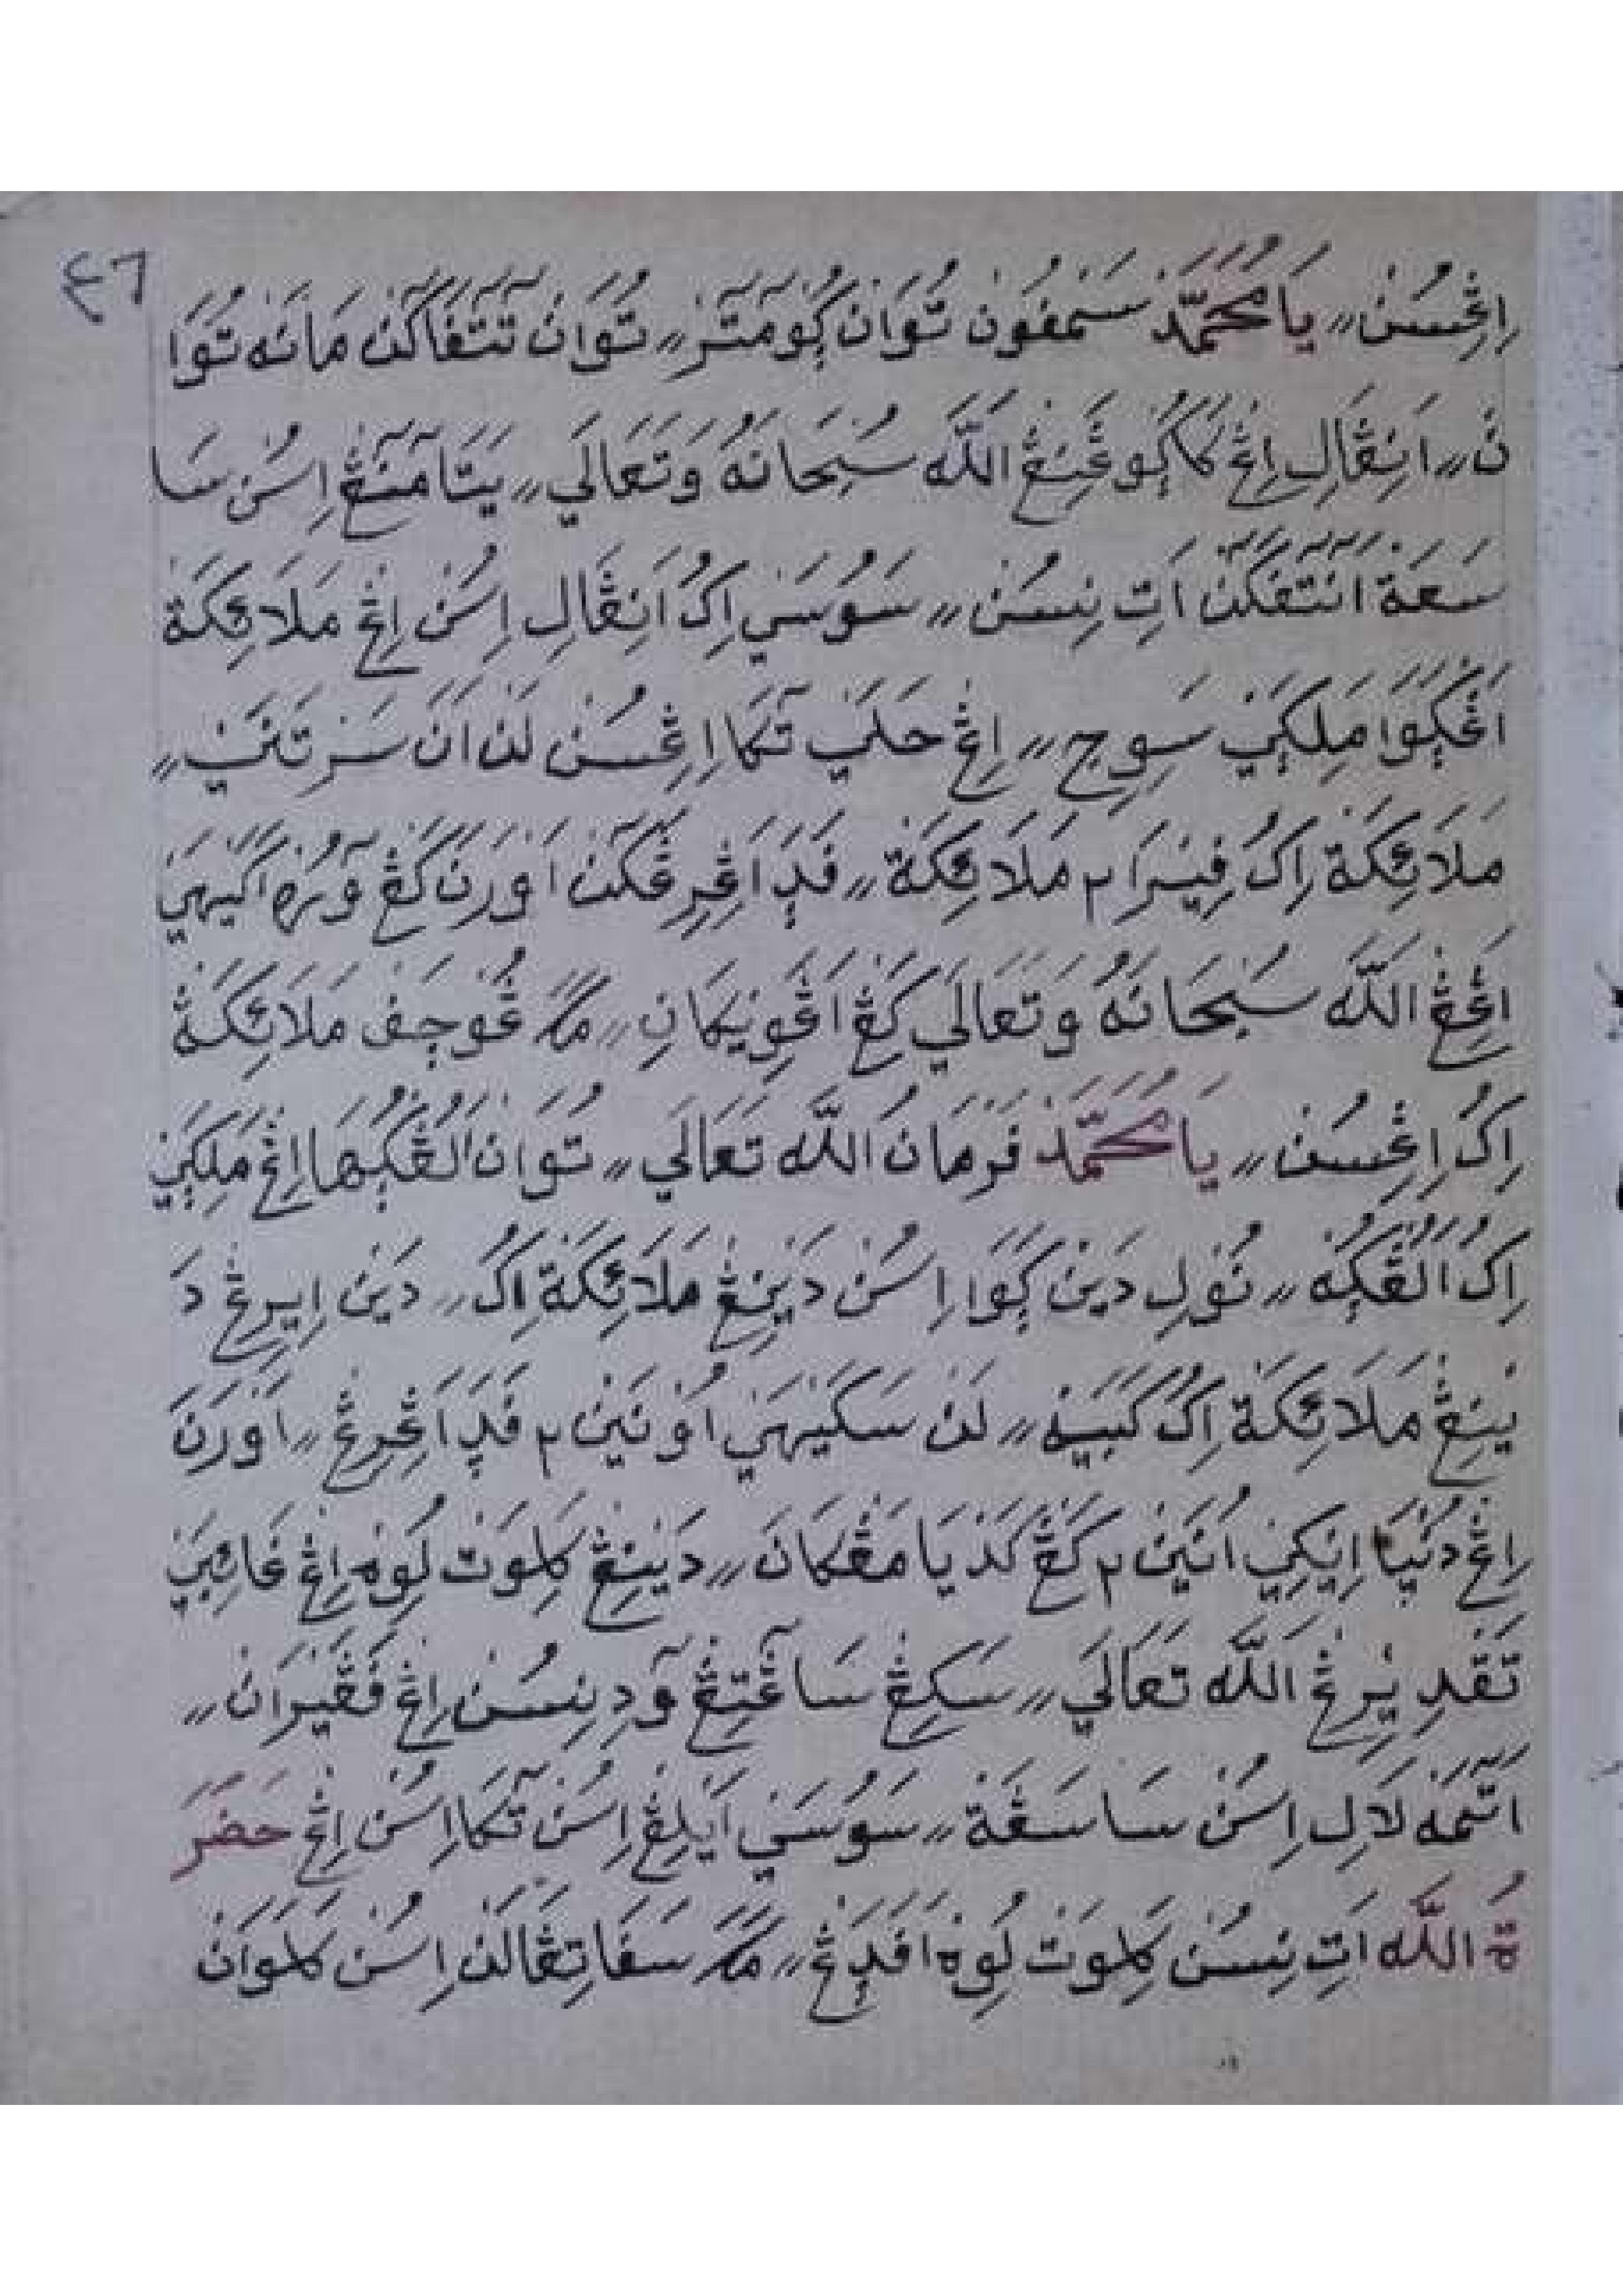 ٤٦
اِڠْسُنْ ۏ يَا مُحَمَّدْ سَمْفُوْن تُوَانْ ڮُوْمَتَرْ ۏ تُوَانْ تَتَڤَاكَنْ مَانَه تُوَا
نْ ۏ اَنِڠْڮَالِ اِڠْ كَاڮُوڠَنِڠْ اللّٰه سُبْحَانَهُ وَتَعَالَي ۏ يَتَا مَنِڠْ اِسُنْ سَا
سَعَةْ اَنَتَفَكَنْ اَتِ نِسُنْ ۏ سَوُسَيْ اِكُ اَنِڠْڮَالِ اِسُنْ اِڠْ مَلَائِكَةْ
اَڠْڮَوَا مَلِكَيْ سَوِجِ ۏ اِڠْ حَلَيْ تَكَا اِڠْسُنْ لَنْ اَنَ سَرْتَنَيْ ۏ
مَلَائِكَةْ اِكُ فِيْرَا ٢ مَلَائِكَةْ ۏ فَدَ اَڠِرِڠَكَنْ اَوْرَنَ كَڠْ وَرُهْ اَكَيْهَيْ
اَڠِڠْ اللّٰه سُبْحَانَهُ وَتَعَالَي كَڠْ اَڠَوُنِيْكَانِ ۏ مَكَ ڠُوْجَفْ مَلَائِكَةْ
اِكُ اِڠْسُنْ ۏ يَا مُحَمَّدْ فَرْمَانُ اللّٰه تَعَالَي ۏ تُوَانْ الُڠْڮُهَا اِڠْ مَلِكَيْ
اِكُ الُڠْڮُه ۏ نُوْلِ دَيْنْ ڮَوَا اِسُنْ دَيْنِڠْ مَلَائِكَةْ اِكُ ۏ دَيْن اِيْرِڠْ دَ
يْنِڠْ مَلَائِكَةْ اِكُ كَبَيْه ۏ لَنْ سَكَيْهَيْ اُوْنَيْنْ ٢ فَدَ اَڠِرِڠْ ۏ اَوْرَنَ
اِڠْ دُنْيَا اِيْكِيْ اُنَيْنْ ٢ كَڠْ كَدْيَا مَڠْكَانَ ۏ دَيْنِڠْ كَلِوَتْ لُوِهْ اِڠْ غَائِبَيْ
تَقْدِيْرِڠْ اللّٰه تَعَالَي ۏ سَكِڠْ سَاڠَتِڠْ وَدِ نِسُنْ اِڠْ فَڠَيْرَانْ ۏ
اَتَمَه لَالِ اِسُنْ سَاسَعَةْ ۏ سَوُسَيْ اَيْلِڠْ اِسُنْ تَكَا اِسُنْ اِڠْ حَضْرَ
ةُ اللّٰه اَتِ نِسُنْ كَلِوَتْ لُوِهْ اَفَدَڠْ ۏ مَكَ سَفَاتِڠَالَنْ اِسُنْ كَلَوَانْ